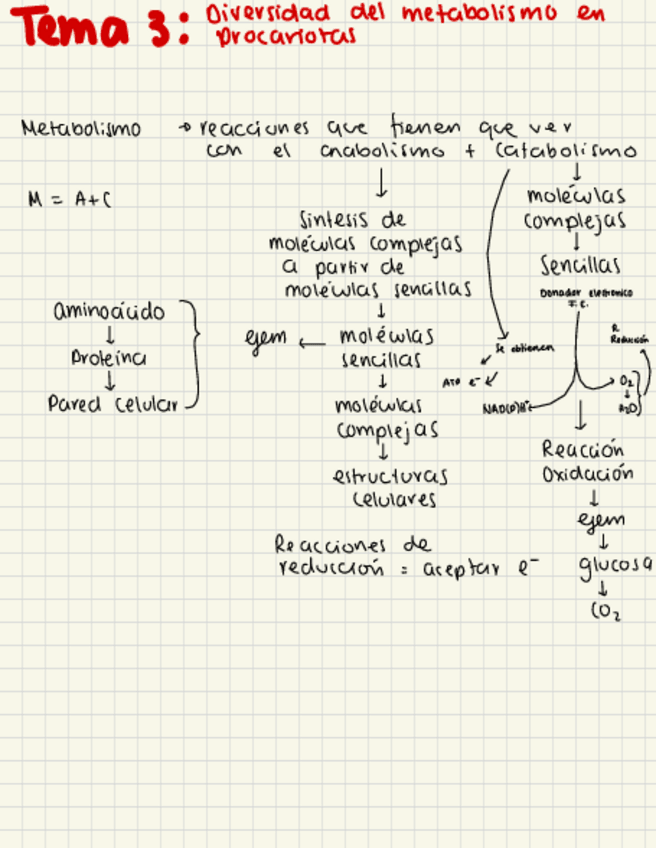 Tema 3: Diversidad del metabolismo en
procariotas
Metabolismo → reacciones que tienen que ver
con el anabolismo + catabolismo
M = A+C
↓
Síntesis de
moléculas complejas
a partir de
moléculas sencillas
↓
ejem ← moléculas
sencillas
↓
moléculas
complejas
↓
estructuras
celulares
Aminoácido
↓
Proteína
↓
Pared celular
Reacciones de
reducción = aceptar e⁻
Se obtienen
ATP e⁻
NAD(P)H⁺
↓
moléculas
complejas
↓
Sencillas
Donador electronico
F.C.
R.
Reducción
O₂
↓
H₂O
↓
Reacción
Oxidación
↓
ejem
↓
glucosa
↓
CO₂